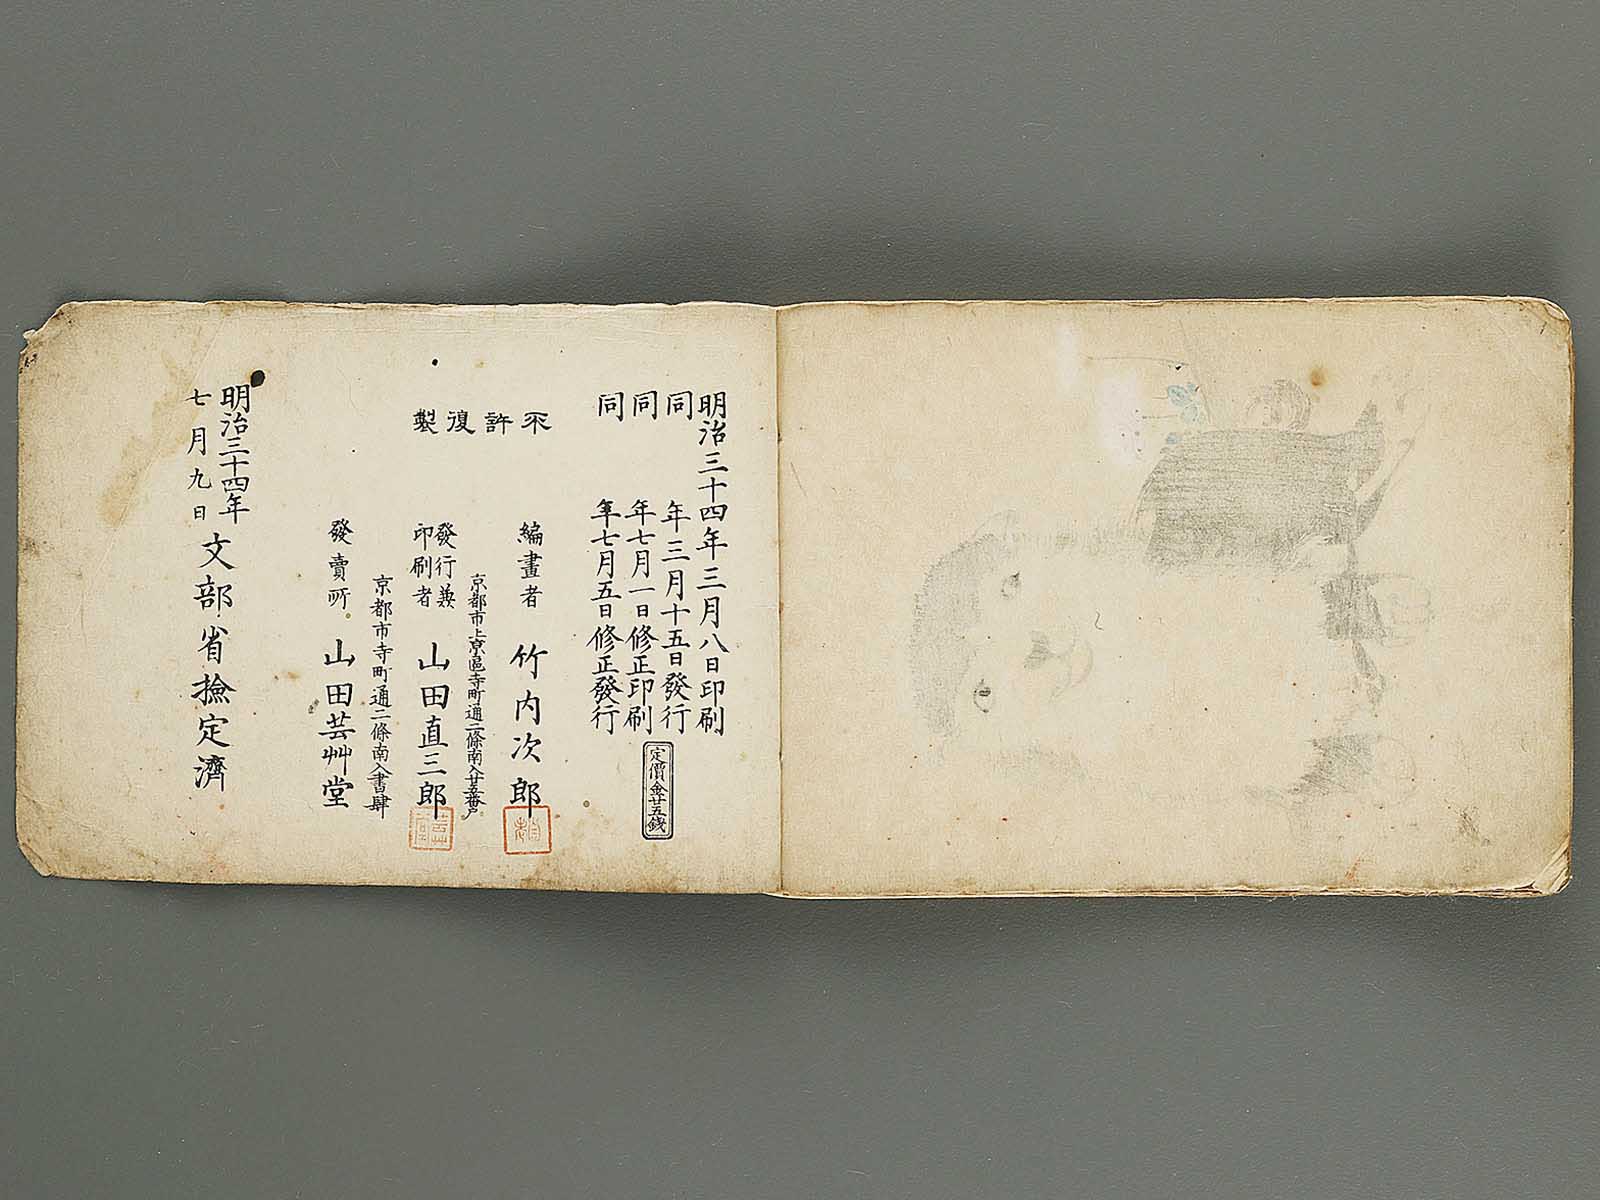 明治三十四年三月八日印刷
同年三月十五日發行
同年七月一日修正印刷
同年七月五日修正發行
定價金廿五錢
不許復製
編畫者 竹内次郎
京都市上京區寺町通二條南入廿五番戸
發行兼印刷者 山田直三郎
京都市寺町通二條南入書肆
發賣所 山田芸艸堂
明治三十四年
七月九日
文部省撿定濟